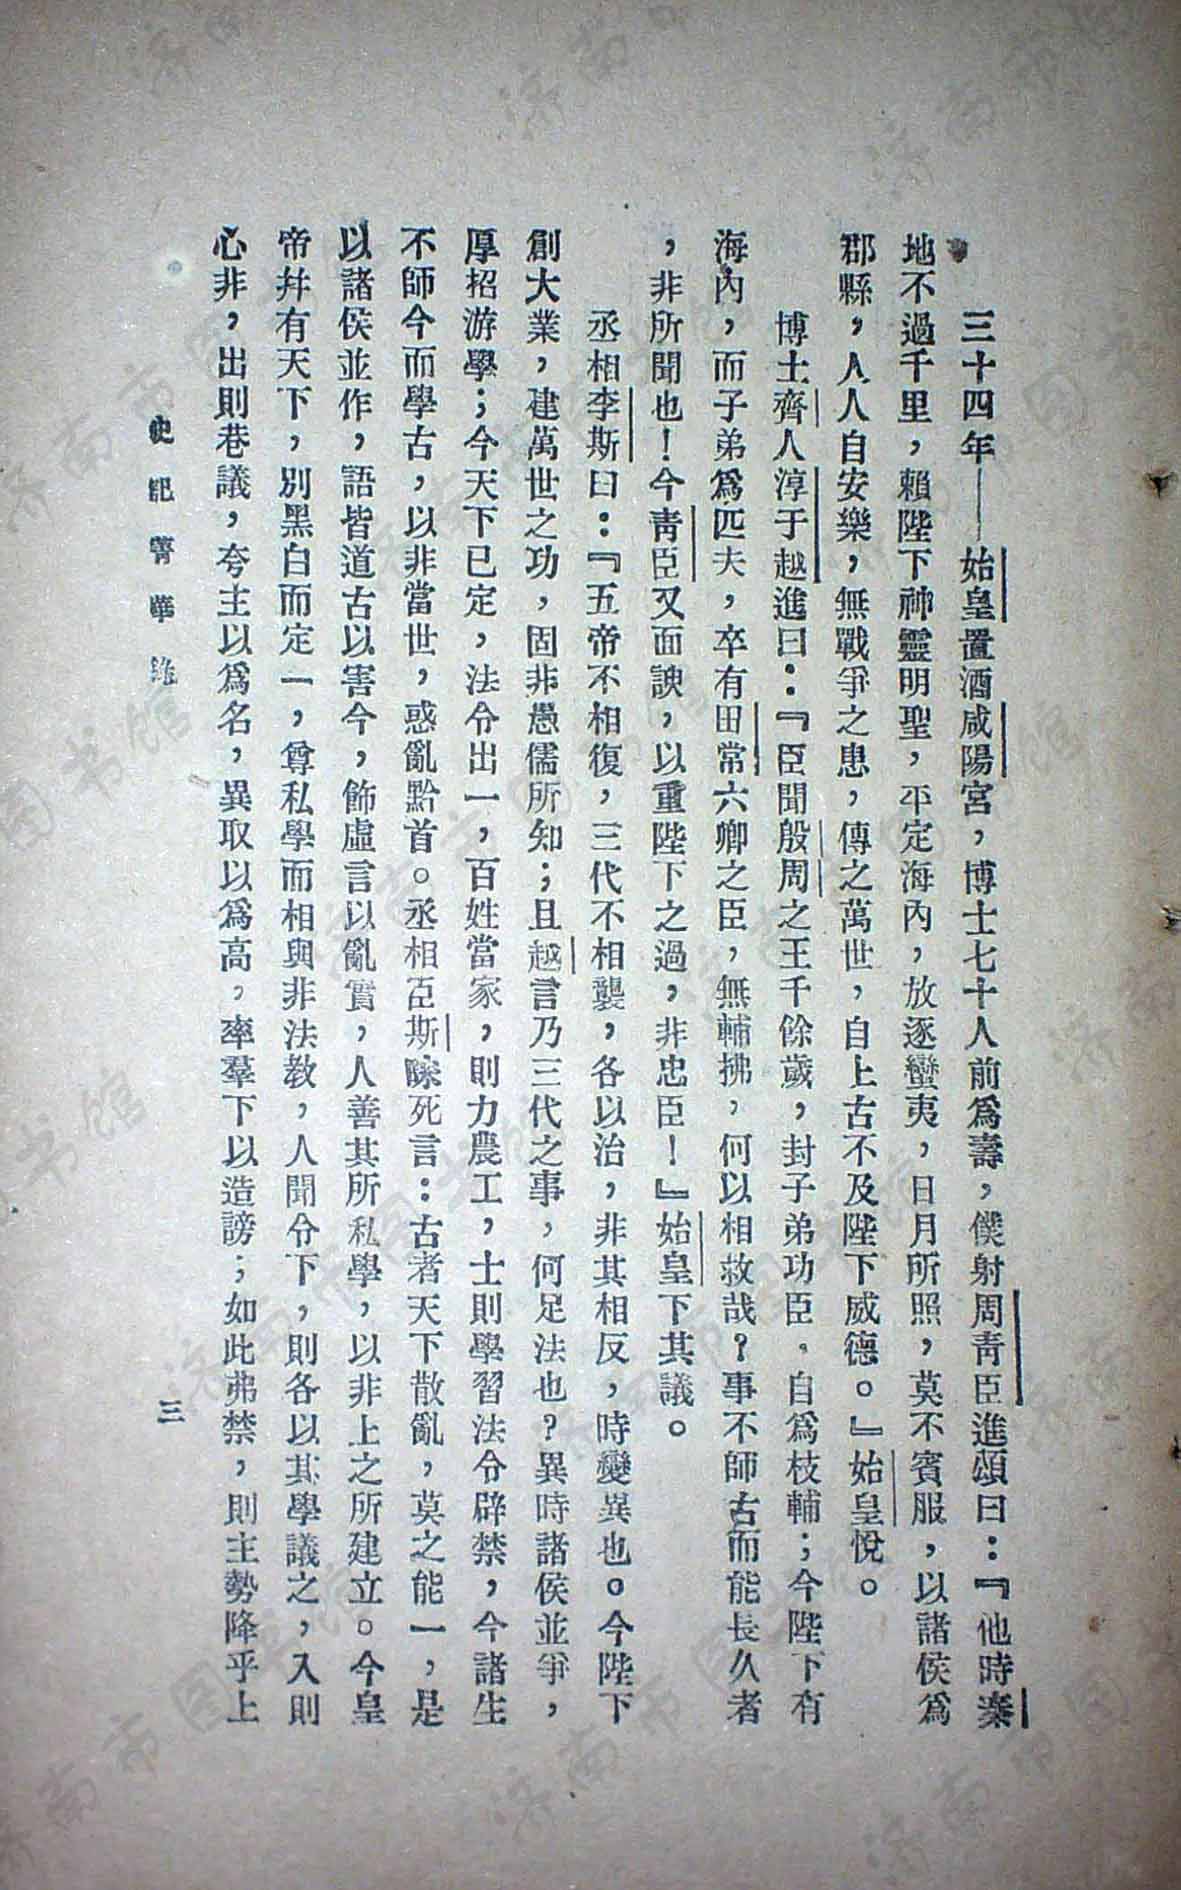 三十四年——始皇置酒咸陽宮，博士七十人前爲壽，僕射周靑臣進頌曰：『他時秦
地不過千里，賴陛下神靈明聖，平定海內，放逐蠻夷，日月所照，莫不賓服，以諸侯爲
郡縣，人人自安樂，無戰爭之患，傳之萬世，自上古不及陛下威德。』始皇悅。
博士齊人淳于越進曰：『臣聞殷周之王千餘歲，封子弟功臣，自爲枝輔；今陛下有
海內，而子弟爲匹夫，卒有田常六卿之臣，無輔拂，何以相救哉？事不師古而能長久者
，非所聞也！今靑臣又面諛，以重陛下之過，非忠臣！』始皇下其議。
丞相李斯曰：『五帝不相復，三代不相襲，各以治，非其相反，時變異也。今陛下
創大業，建萬世之功，固非愚儒所知；且越言乃三代之事，何足法也？異時諸侯並爭，
厚招游學；今天下已定，法令出一，百姓當家，則力農工，士則學習法令辟禁，今諸生
不師今而學古，以非當世，惑亂黔首。丞相臣斯昧死言：古者天下散亂，莫之能一，是
以諸侯並作，語皆道古以害今，飾虛言以亂實，人善其所私學，以非上之所建立。今皇
帝幷有天下，別黑白而定一，尊私學而相與非法教，人聞令下，則各以其學議之，入則
心非，出則巷議，夸主以爲名，異取以爲高，率羣下以造謗；如此弗禁，則主勢降乎上
史記菁華錄
三
济南市图书馆